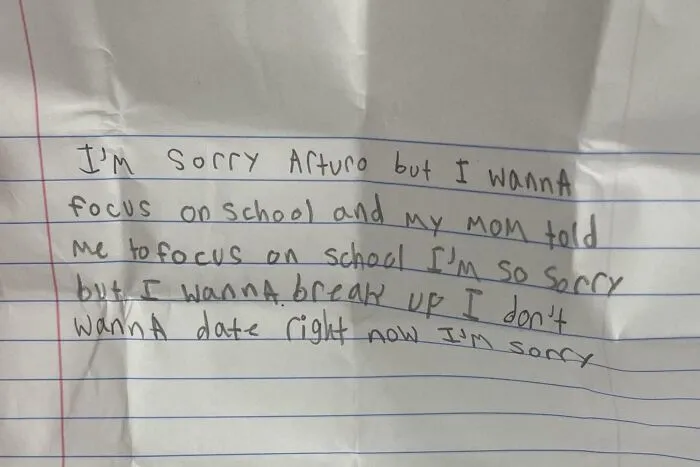 I'M sorry Arturo but I wannA
focus on school and my mom told
me to focus on school I'm so sorry
but I wannA break up I don't
wannA date right now I'm sorry